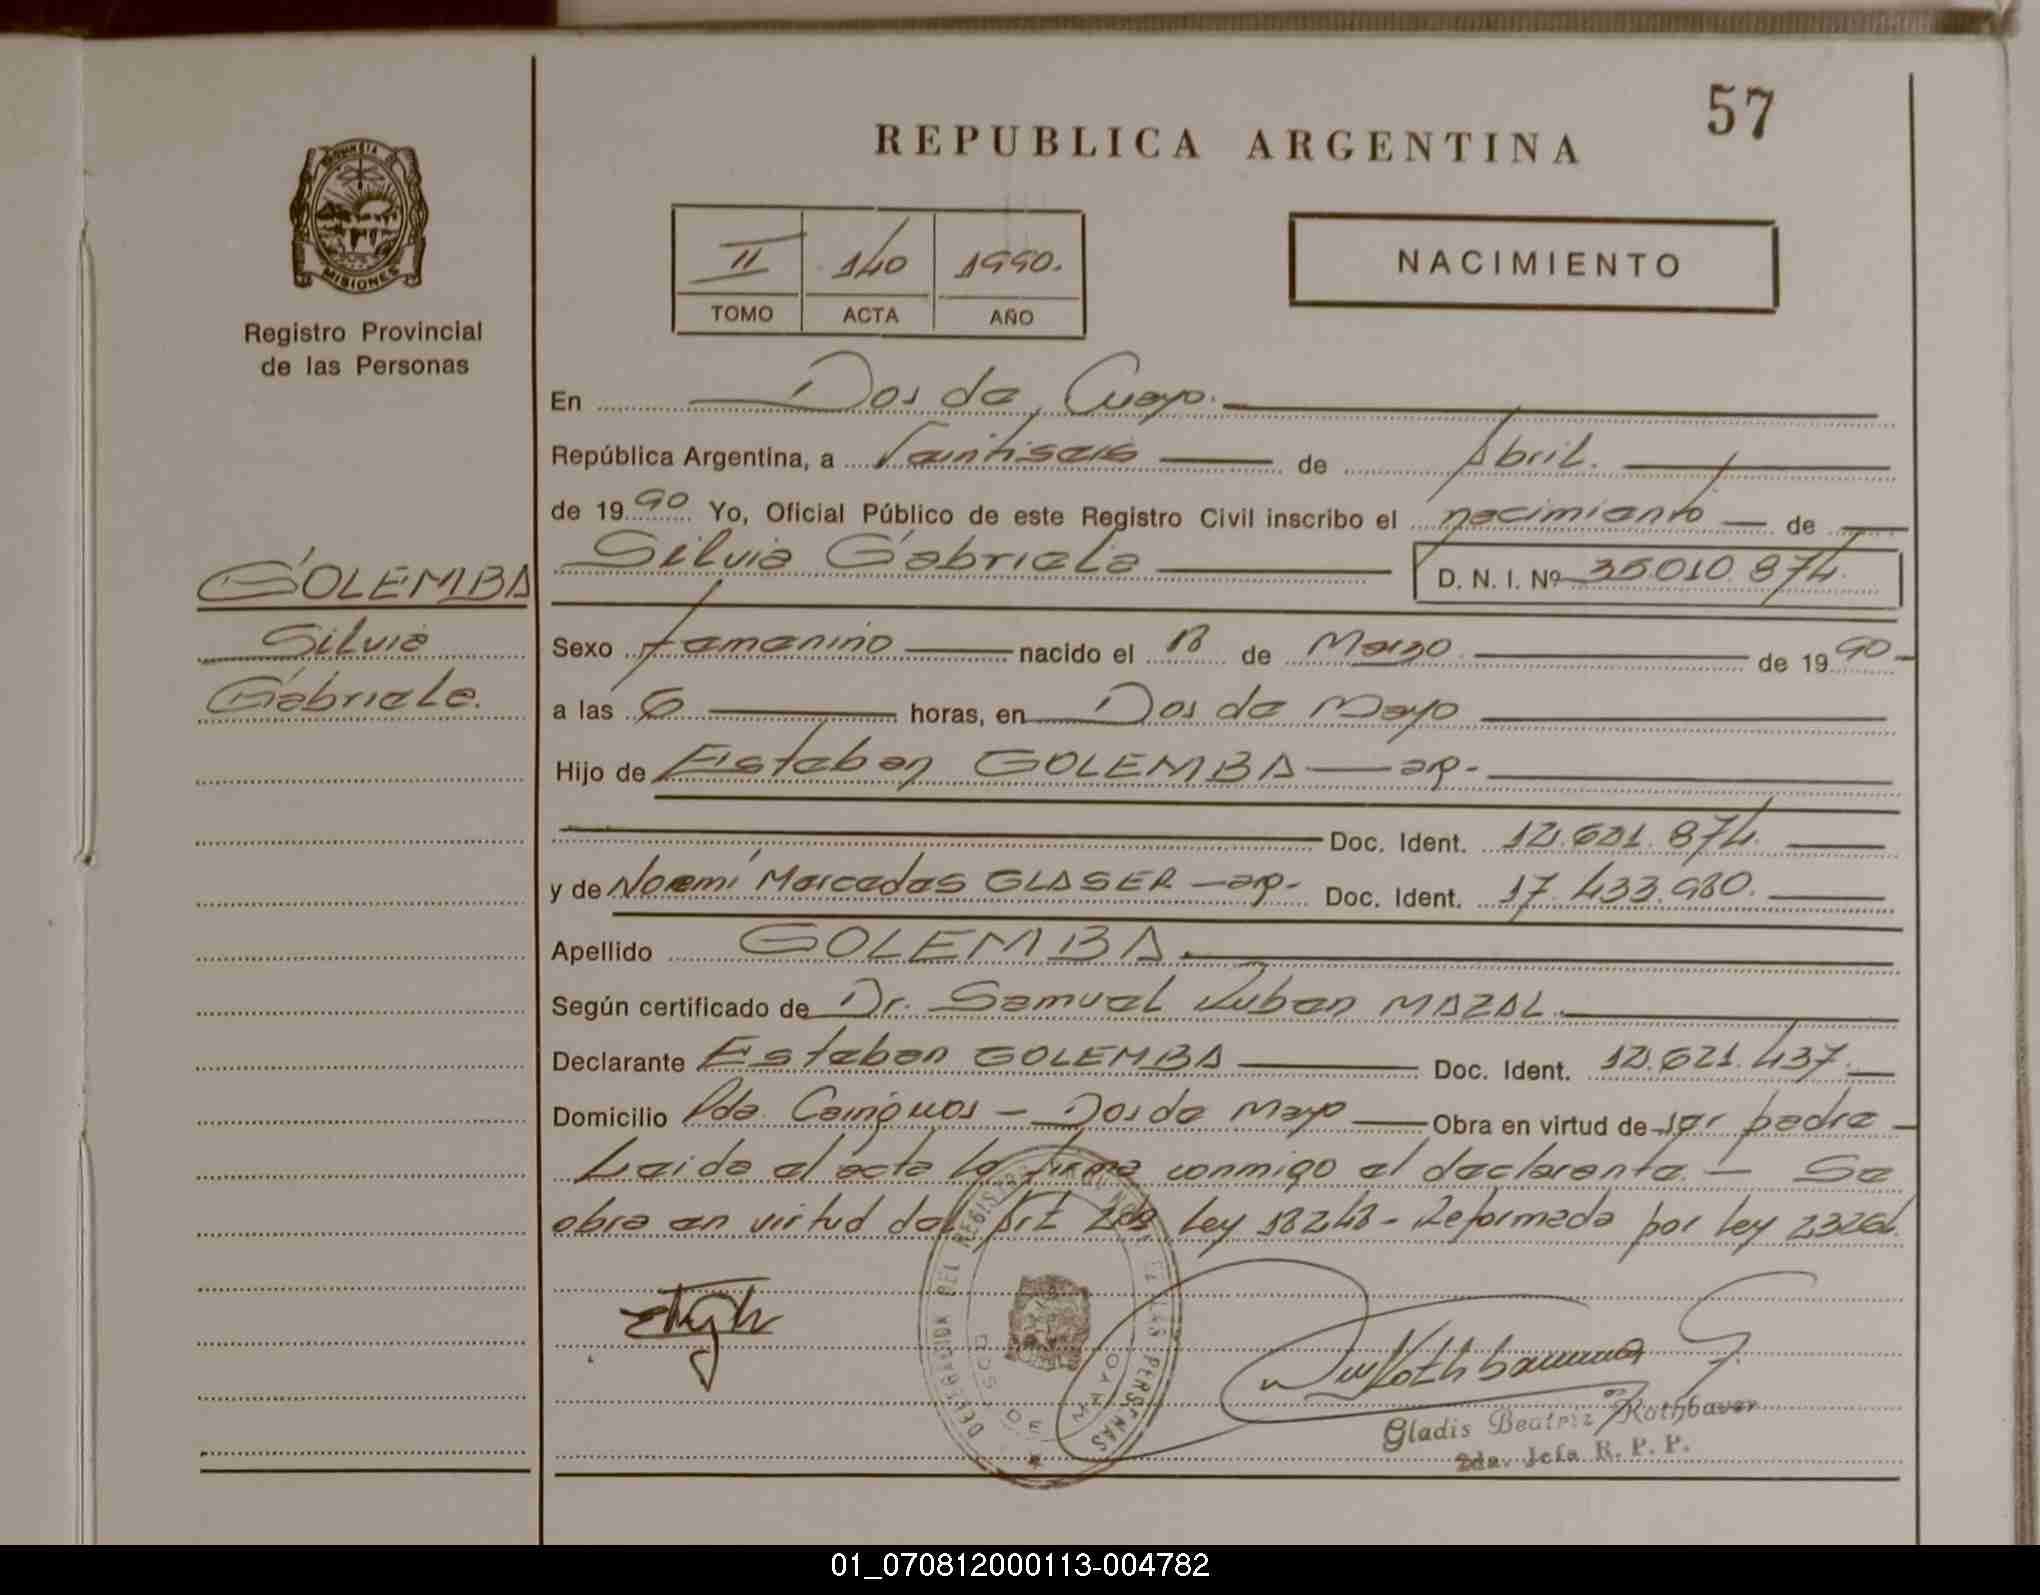 57
REPUBLICA ARGENTINA
PROVINCIA
MISIONES
Registro Provincial
de las Personas
II 140 1990.
TOMO ACTA AÑO
NACIMIENTO
En Dos de Mayo.
República Argentina, a Veintiseis de Abril.
de 1990 Yo, Oficial Público de este Registro Civil inscribo el nacimiento de
GOLEMBA
Silvia
Gabriela.
Silvia Gabriela D. N. I. Nº 35.010.874.
Sexo femenino nacido el 18 de Marzo de 1990
a las 6 horas, en Dos de Mayo
Hijo de Esteban GOLEMBA — ar-
Doc. Ident. 12.621.874.
y de Noemí Mercedes GLASER — ar- Doc. Ident. 17.433.980.
Apellido GOLEMBA
Según certificado de Dr. Samuel Ruben MAZAL.
Declarante Esteban GOLEMBA Doc. Ident. 12.621.437.
Domicilio Pde. Cainguas - Dos de Mayo Obra en virtud de ser padre
Leida el acta la firma conmigo el declarante. — Se
obra en virtud del Art 2do Ley 18248 - Reformada por ley 23264.
DELEGACION DEL REGISTRO DE LAS PERSONAS
DOS DE MAYO
Rothbauer G.
Gladis Beatriz Rothbauer
2da. Jefa R. P. P.
01_070812000113-004782